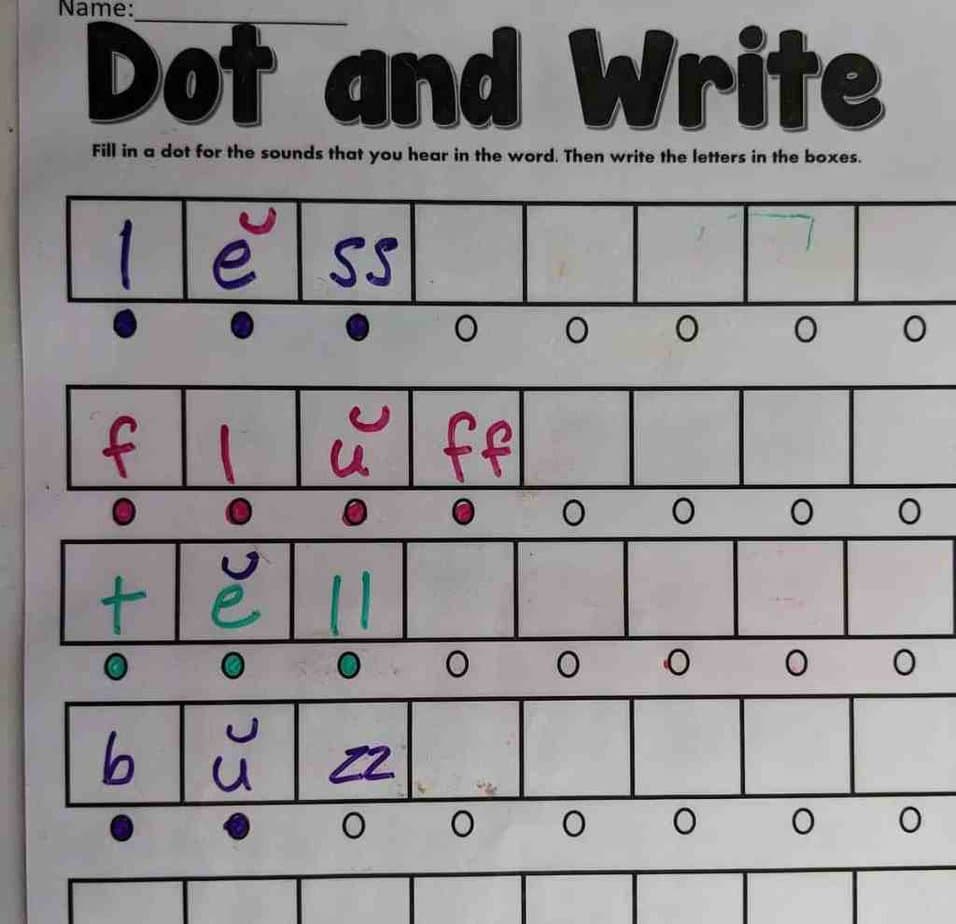 Name:
Dot and Write
Fill in a dot for the sounds that you hear in the word. Then write the letters in the boxes.
l ĕ ss
f l ŭ ff
t ĕ ll
b ŭ zz